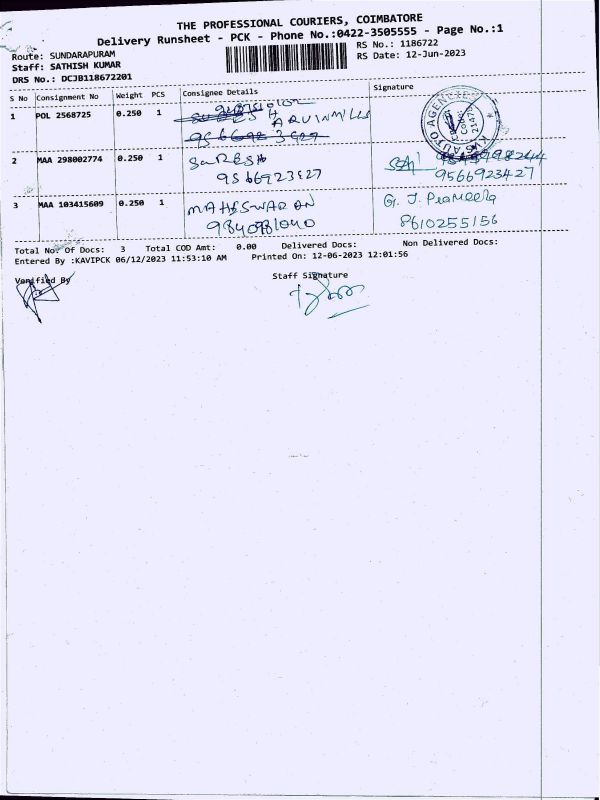 THE PROFESSIONAL COURIERS, COIMBATORE
Delivery Runsheet - PCK - Phone No.:0422-3505555 - Page No.:1
Route: SUNDARAPURAM
RS No.: 1186722
Staff: SATHISH KUMAR
RS Date: 12-Jun-2023
DRS No.: DCJB118672201
S No Consignment No Weight PCS Consignee Details Signature
1 POL 2568725 0.250 1
ARUINMILLS
2 MAA 298002774 0.250 1 SuRESH
9566923427
9566923427
3 MAA 103415609 0.250 1 MAHESWARAN G. J. Prameela
9840981040 8610255156
Total No. Of Docs: 3 Total COD Amt: 0.00 Delivered Docs: Non Delivered Docs:
Entered By :KAVIPCK 06/12/2023 11:53:10 AM Printed On: 12-06-2023 12:01:56
Verified By Staff Signature